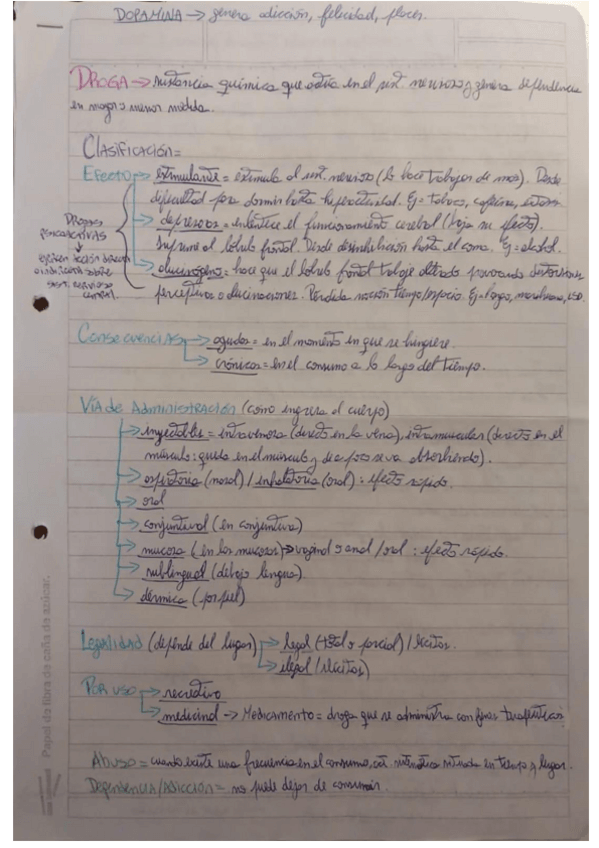 DOPAMINA → genera adicción, felicidad, placer.
DROGA → sustancia química que actúa en el sist. nervioso y genera dependencia
en mayor o menor medida.
Clasificación=
Efecto → estimulante = estimula al sist. nervioso (lo hace trabajar de más). Desde
dificultad para dormir hasta hiperactividad. Ej= tabaco, cafeína,
→ depresora = enlentece el funcionamiento cerebral (baja su efecto).
Suprime al lóbulo frontal. Desde desinhibición hasta el coma. Ej= alcohol.
→ alucinógeno = hace que el lóbulo frontal trabaje alterado provocando distorsiones
perceptivas o alucinaciones. Pérdida noción tiempo/espacio. Ej= marihuana, LSD.
Drogas
psicoactivas
↓
ejercen acción directa
o indirecta sobre
sist. nervioso
central.
Consecuencias → agudas = en el momento en que se ingiere.
→ crónicas = en el consumo a lo largo del tiempo.
Vía de Administración (como ingresa al cuerpo)
→ inyectables = intravenosa (directo en la vena), intramuscular (directo en el
músculo: queda en el músculo y de a poco se va absorbiendo).
→ aspiratoria (nasal) / inhalatoria (oral) : efecto rápido.
→ oral
→ conjuntival (en conjuntiva)
→ mucosa (en las mucosas) → vaginal o anal / oral : efecto rápido.
→ sublingual (debajo lengua).
→ dérmica (por piel)
Legalidad (depende del lugar) → legal (total o parcial) / lícitas.
→ ilegal / ilícitas)
Por uso → recreativo
→ medicinal → Medicamento = droga que se administra con fines terapéuticos
Abuso = cuando existe una frecuencia en el consumo, situada en tiempo y lugar.
Dependencia/Adicción = no puede dejar de consumir.
Papel de fibra de caña de azúcar.